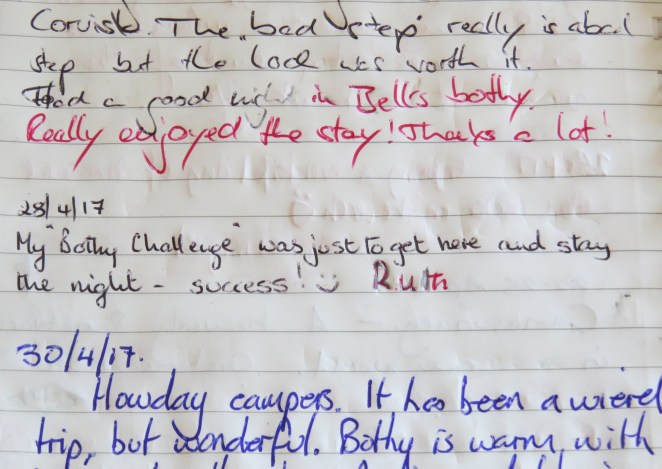 Coruisk. The "bad step" really is a bad
step but the Loch was worth it.
Had a good night in Bells bothy.
Really enjoyed the stay! Thanks a lot!
28/4/17
My "Bothy Challenge" was just to get here and stay
the night - success! Ruth
30/4/17.
Howday campers. It has been a wiered
trip, but wonderful. Bothy is warm, with